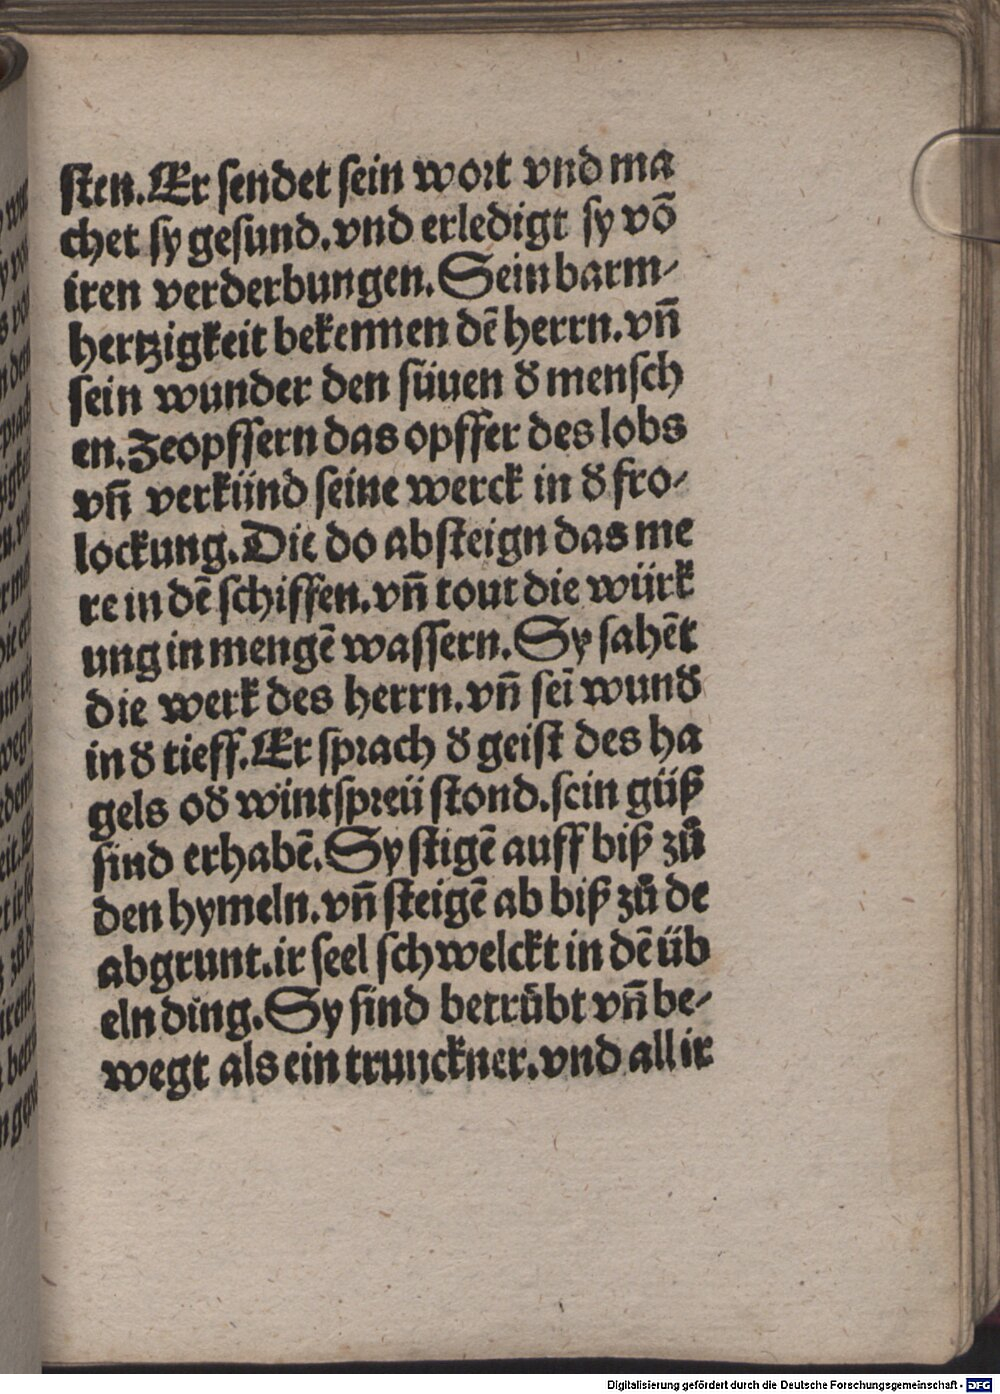 ſten. Er ſendet ſein wort vnd ma
chet ſy geſund. vnd erledigt ſy võ
iren verderbungen. Sein barm-
hertzigkeit bekennen dē herrn. vn̄
ſein wunder den ſüuen d̕ menſch
en. Zeopfſern das opffer des lobs
vn̄ verkünd ſeine werck in d̕ fro-
lockung. Die do abſteign das me
re in dē ſchiffen. vn̄ tout die würk
ung in mengē waſſern. Sy ſahēt
die werk des herrn. vn̄ ſeī wund̕
in d̕ tieff. Er ſprach d̕ geiſt des ha
gels od̕ wintſpreü ſtond. ſein güß
ſind erhabē. Sy ſtigē auff biß zů
den hymeln. vn̄ ſteigē ab biß zů de
abgrunt. ir ſeel ſchwelckt in dē üb
eln ding. Sy ſind betrůbt vn̄ be-
wegt als ein trunckner. vnd all ir
Digitalisierung gefördert durch die Deutsche Forschungsgemeinschaft - DFG